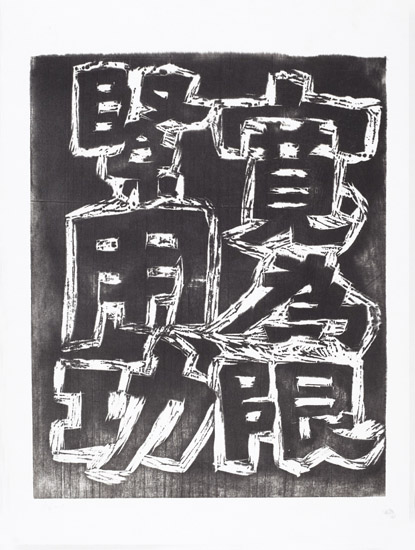 寬為限
緊用功